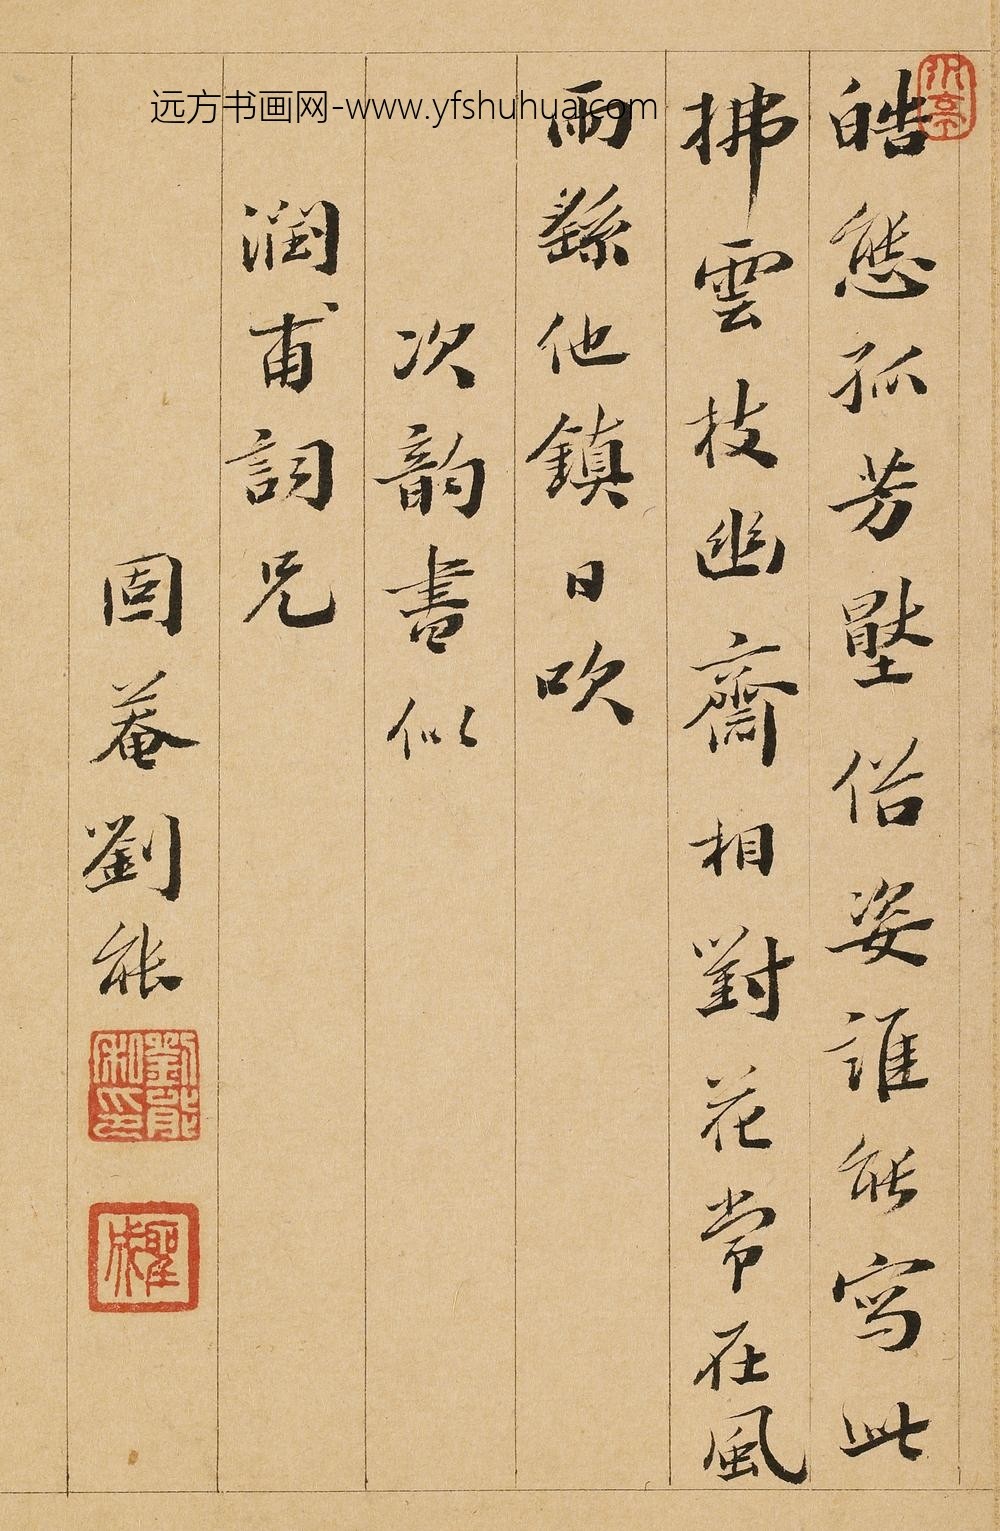 远方书画网-www.yfshuhua.com
皓態孤芳壓俗姿誰能寫此
拂雲枝幽齋相對花常在風
雨繇他鎮日吹
次韵書似
潤甫詞兄
固菴劉能
劉能私印